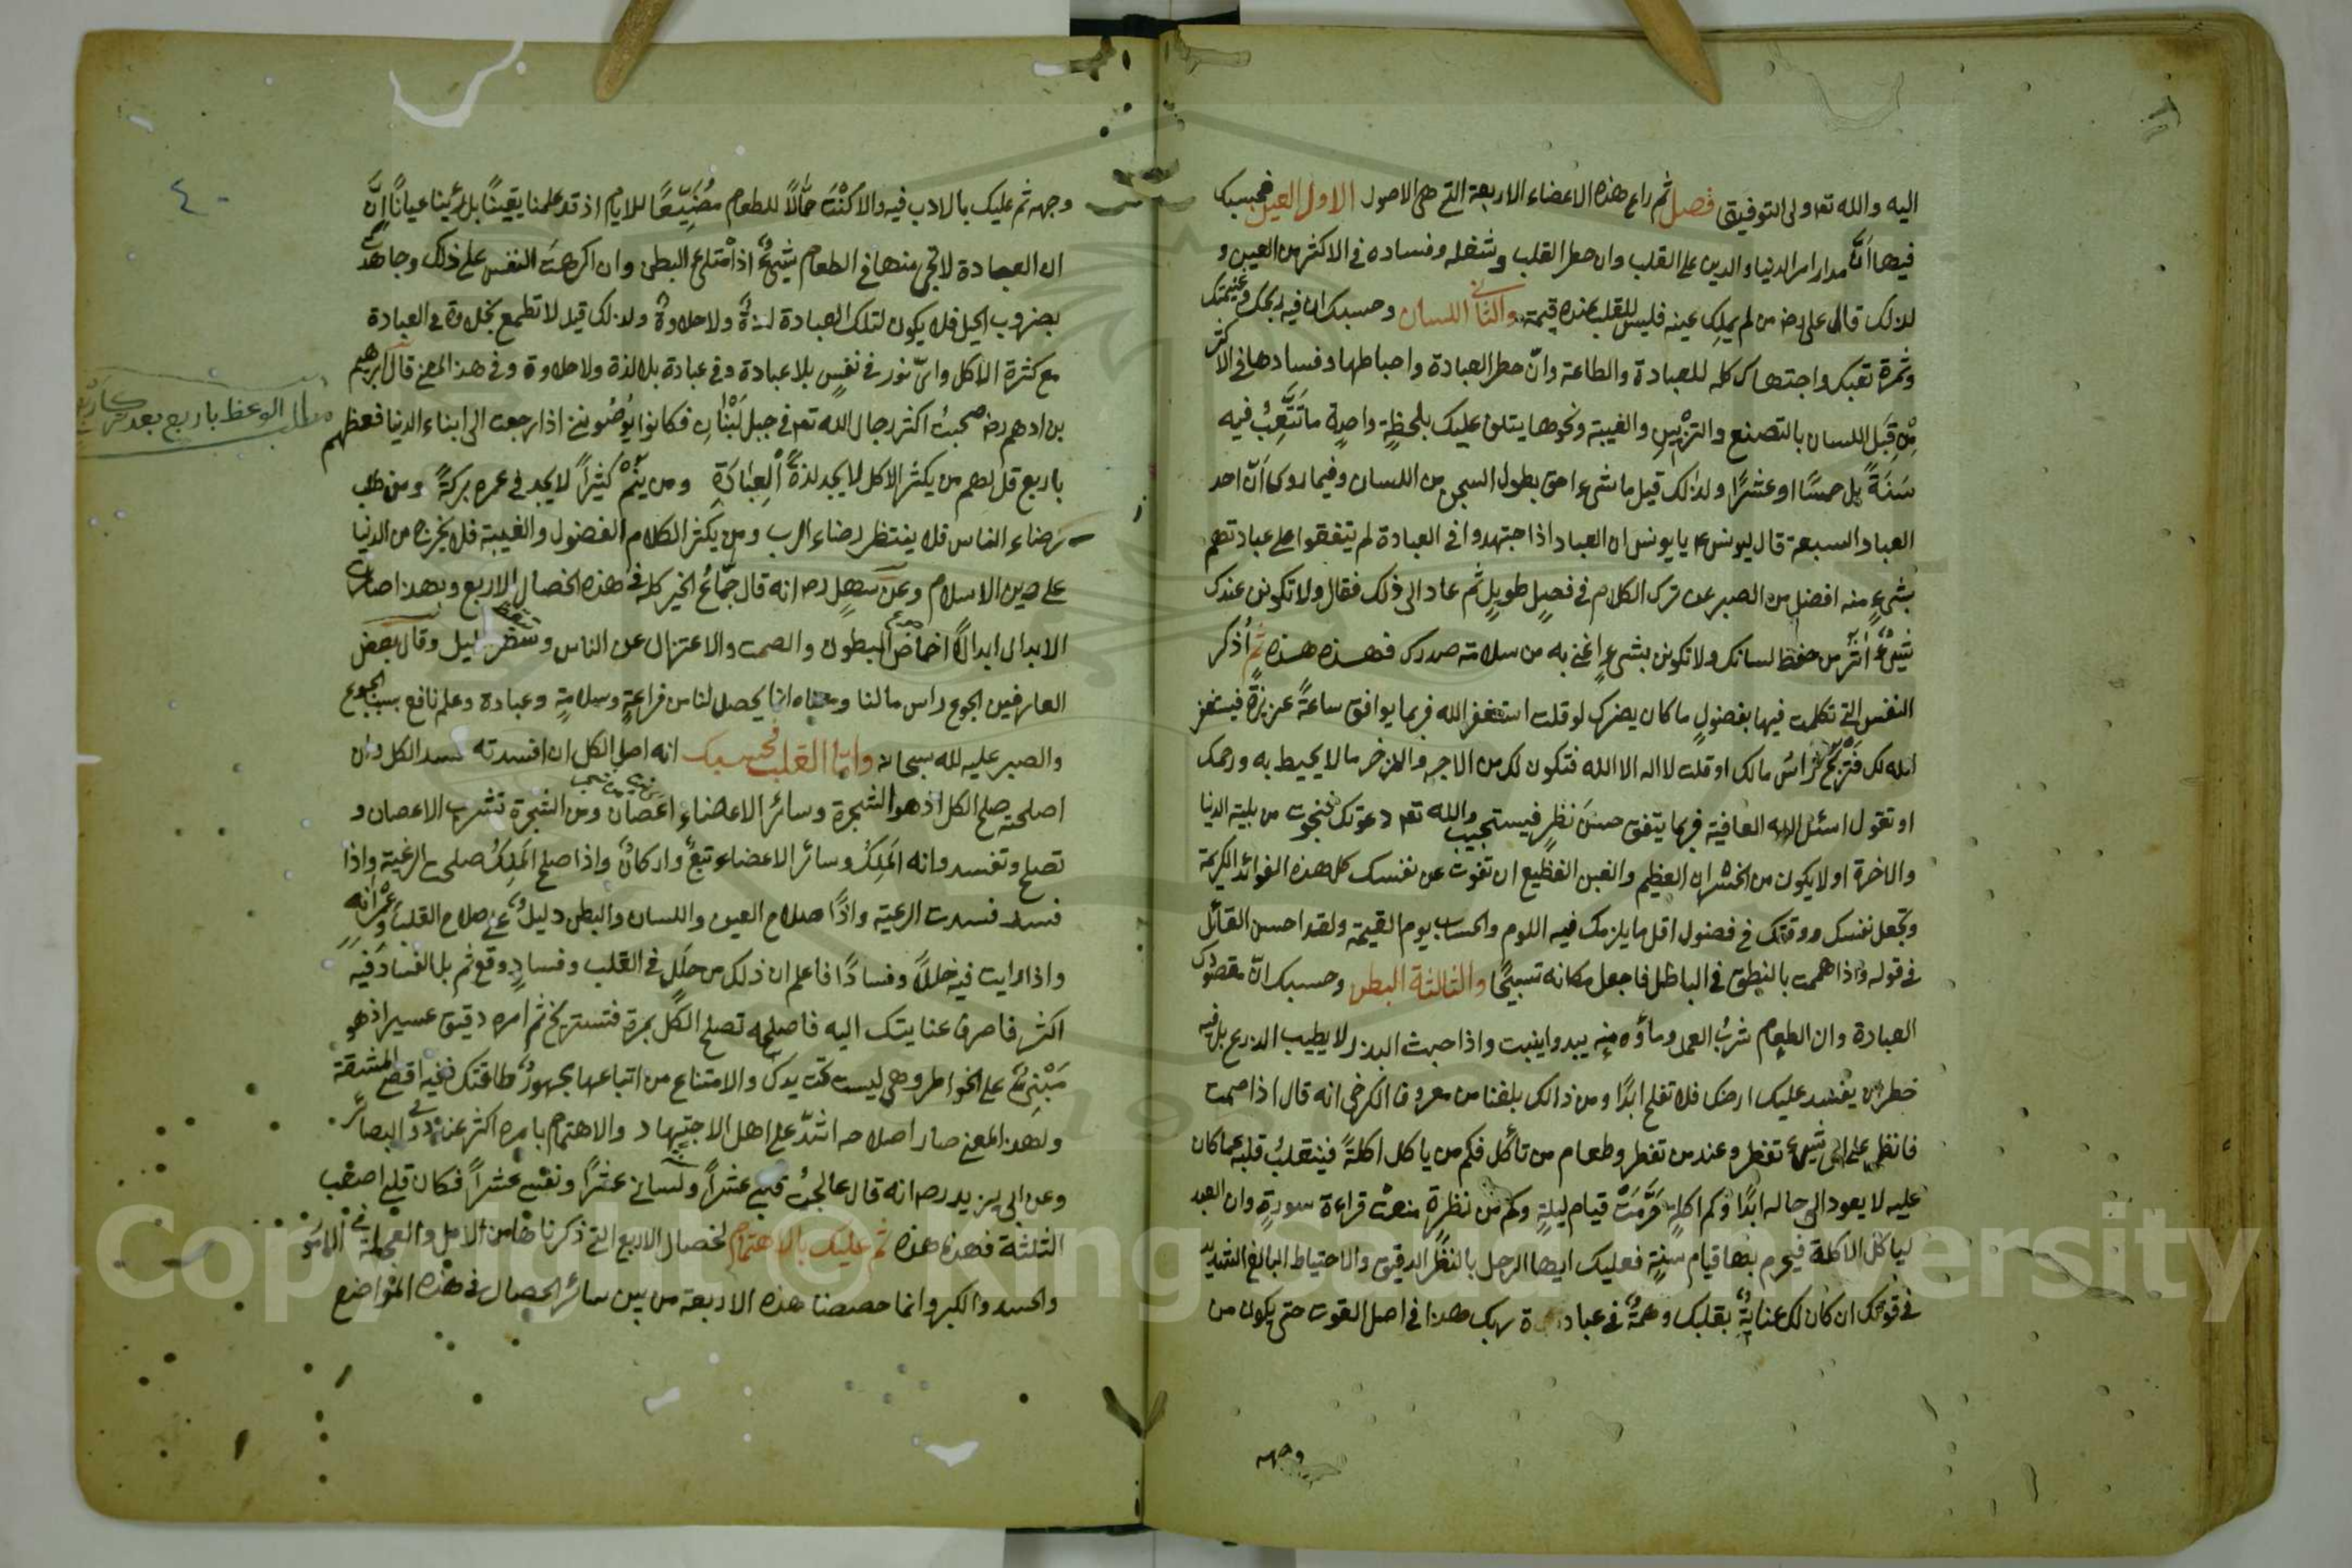 اليه والله تعه ولى التوفيق فصل ثم راع هذه الاعضاء الاربعة التى هى الاصول الاول العين فحسبك
فيها انّ مدار امر الدنيا والدين على القلب وان خطر القلب وشغله وفساده فى الاكثر من العين و
لذلك قال على رضه من لم يملك عينه فليس للقلب عنده قيمة والثانى اللسان وحسبك ان فيه ربحك وغنيمتك
وثمرة تعبك واجتهادك كله للعبادة والطاعة وانّ خطر العبادة واحباطها وفسادها فى الاكثر
مِن قِبَل اللسان بالتصنع والتزيين والغيبة ونحوها يتلف عليك بلحظةٍ واحدةٍ ما تَتَعَّبُ فيه
سَنَةً بل خمسًا او عشرًا ولذلك قيل ما شىء احق بطول السجن من اللسان وفيما روى انّ احد
العباد السبعة قال ليونس ع يا يونس ان العباد اذا اجتهدوا فى العبادة لم يتفقوا على عبادتهم
بشىءٍ منه افضل من الصبر عن ترك الكلام فى فصيلٍ طويلٍ ثم عاد الى ذلك فقال ولا تكونن عندك
شىءٌ اٰثَرُ من حفظ لسانك ولا تكونن بشىءٍ اغنى به من سلامة صدرك فهذه هذه ثم اُذكر
النفس التى تكلمت فيها بفضولٍ ما كان يضرك لو قلت استغفر الله فربما يوافق ساعةً عزيزةً فيغفر
الله لك فتربح رأسُ مالك او قلت لا اله الا الله فتكون لك من الاجر والذخر ما لا يحيط به ورحمك
او تقول اسئل الله العافية فربما يتفق حسن نظرٍ فيستجيب الله تعه دعوتك فنجوت من بلية الدنيا
والاخرة او لا يكون من الخسران العظيم والغبن الفظيع ان تفوت عن نفسك كل هذه الفوائد الكريمة
وتجعل نفسك ووقتك فى فضول اقل ما يلزمك فيه اللوم والحساب يوم القيمة ولقد احسن القائل
فى قوله واذا هممت بالنطق فى الباطل فاجعل مكانه تسبيحًا والثالثة البطن وحسبك انّ مقصودك
العبادة وان الطعام شربُ العمل وماؤه منه يبدو وينبت واذا خبث البذر لا يطيب الزرع بل فيه
خطر ان يفسد عليك ارضك فلا تفلح ابدًا ومن ذالك بلغنا من معروف الكرخى انه قال اذا صمت
فانظر على اىّ شىءٍ تفطر وعند من تفطر وطعام من تأكل فكم من يأكل اكلةً فينقلبُ قلبه عما كان
عليه لا يعود الى حاله ابدًا وكم اكلةٍ حَرَّمَتْ قيام ليلةٍ وكم من نظرةٍ منعت قراءة سورةٍ وان العبد
ليأكل الاكلة فيحرم بها قيام سنةٍ فعليك ايها الرجل بالنظر الدقيق والاحتياط البالغ الشديد
فى قوتك ان كان لك عنايةٌ بقلبك وهمةٌ فى عبادة ربك هذا فى اصل القوت حتى يكون من
وجهه
٤٠
وجهه ثم عليك بالادب فيه والا كُنْتَ حمّالًا للطعام مُضَيِّعًا للايام اذ قد علمنا يقينًا بل رئينا عيانًا انّ
ان العبادة لا تجى منها فى الطعام شىءٌ اذا امتلئ البطن وان اكرهت النفس على ذلك وجاهدت
بضروب الحيل فلا يكون لتلك العبادة لذةٌ ولا حلاوةٌ ولذلك قيل لا تطمع بحلاوة فى العبادة
مع كثرة الاكل واىّ نور فى نفسٍ بلا عبادة وفى عبادة بلا لذة ولا حلاوة وفى هذا المعنى قال ابرهيم
بن ادهم رضه صحبتُ اكثر رجال الله تعه فى جبل لُبْنَان فكانوا يُوصُوننى اذا رجعت الى ابناء الدنيا فعظهم
مطلب الوعظ باربع بعد
باربع قل لهم من يكثر الاكل لا يجد لذةَ العِبَادَةِ ومن يَنَمْ كثيرًا لا يجد فى عمره بركةً ومن طلب
رضاء الناس فلا ينتظر رضاء الرب ومن يكثر الكلام الفضول والغيبة فلا يخرج من الدنيا
على دين الاسلام وعن سهلٍ رحه انه قال جمّاعُ الخير كله فى هذه الخصال الاربع وبهذا صار
الابدال ابدالًا اخماصُ البطون والصمت والاعتزال عن الناس وسهر الليل وقال بعض
العارفين الجوع راس مالنا ومعناه انّا يحصل لنا من فراغةٍ وسلامةٍ وعبادة وعلم نافع بسبب الجوع
والصبر عليه لله سبحانه وامّا القلب فحسبك انه اصل الكل ان افسدته فسد الكل وان
اصلحته صلح الكل اذ هو الشجرة وسائر الاعضاء اغصان ومن الشجرة تشرب الاغصان و
تصلح وتفسد وانه المَلِكُ وسائر الاعضاء تبعٌ واركانٌ واذا صلح المَلِكُ صلحت الرعية واذا
فسد فسدت الرعية واذًا صلاح العين واللسان والبطن دليلٌ على صلاح القلب وعُمْرَانِه
واذا رايت فيه خللًا وفسادًا فاعلم ان ذلك من خللٍ فى القلب وفسادٍ وقع ثَم بل الفساد فيه
اكثر فاصرف عنايتك اليه فاصلحه تصلح الكل بمرة فتستريح ثم امره دقيق عسير اذ هو
مَبْنِىٌّ على الخواطر وهى ليست تحت يدك والامتناع من اتباعها بمجهود طاقتك ففيه اقصى المشقة
ولهذا المعنى صار اصلاحه اشدّ على اهل الاجتهاد والاهتمام بامره اكثر عند ذوى البصائر
وعن ابى يزيد رحه انه قال عالجتُ قلبى عشرًا ولسانى عشرًا ونفسى عشرًا فكان قلبى اصعب
الثلثة فهذه هذه ثم عليك بالاهتمام لخصال الاربع التى ذكرناها من الامل والعجلة فى الامور
والحسد والكبر وانما خصصنا هذه الاربعة من بين سائر الخصال فى هذه المواضع
Copyright © King Saud University